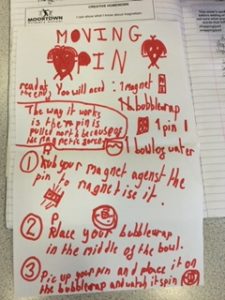 MOORTOWN
CREATIVE HOMEWORK
I can show what I know about magnetism.
MOVING
PIN
read at
the end
You will need: 1 magnet
1 bubblewrap
1 pin
1 bowl of water
The way it works
is the pin is
pulled north because of
the magnetic
① Rub your magnet agenst the
pin to magnetise it.
② Place your bubblewrap
in the middle of the bowl.
③ Pic up your pin and place it on
the bubblewrap and watch it spin